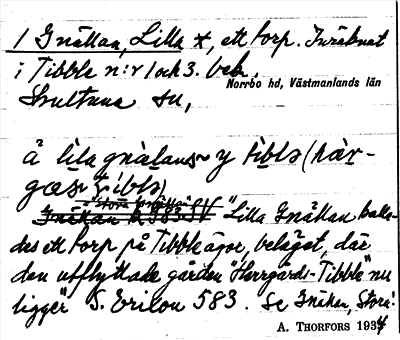 1 Gnällan, Lilla *, ett torp. Inräknat
i Tibble n:r 1 och 3. beb.
Norrbo hd, Västmanlands län
Skultuna sn,
å lila gnälans y tibls (här-
gas tibls)
"Lilla Gnällan kalla-
des ett torp på Tibble ägor, beläget, där
den utflyttade gården "Herrgårds-Tibble" nu
ligger" S. Ericson 583. Se Gnällan, Stora!
A. THORFORS 1934